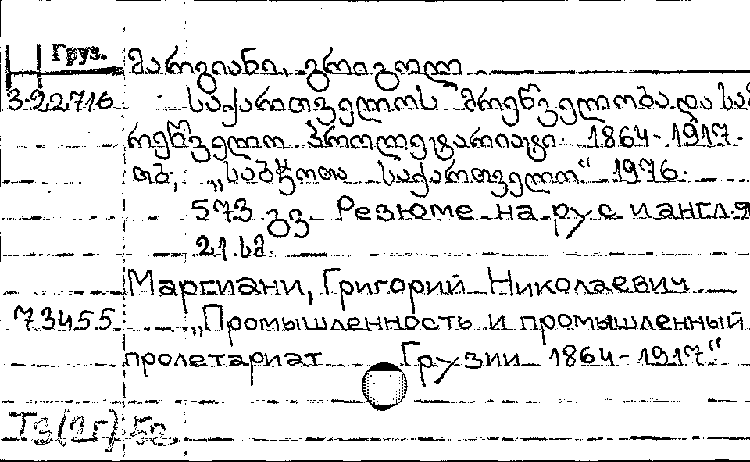 Груз. მარგიანი, გრიგოლ
3-22716 საქართველოს მრეწველობა და სამ
რეწველო პროლეტარიატი 1864-1917.
თბ., „საბჭოთა საქართველო“ 1976.
573 გვ. Резюме на рус и англ.я
21 სმ.
Маргиани, Григорий Николаевич
73455 „Промышленность и промышленный
пролетариат Грузии 1864-1917“